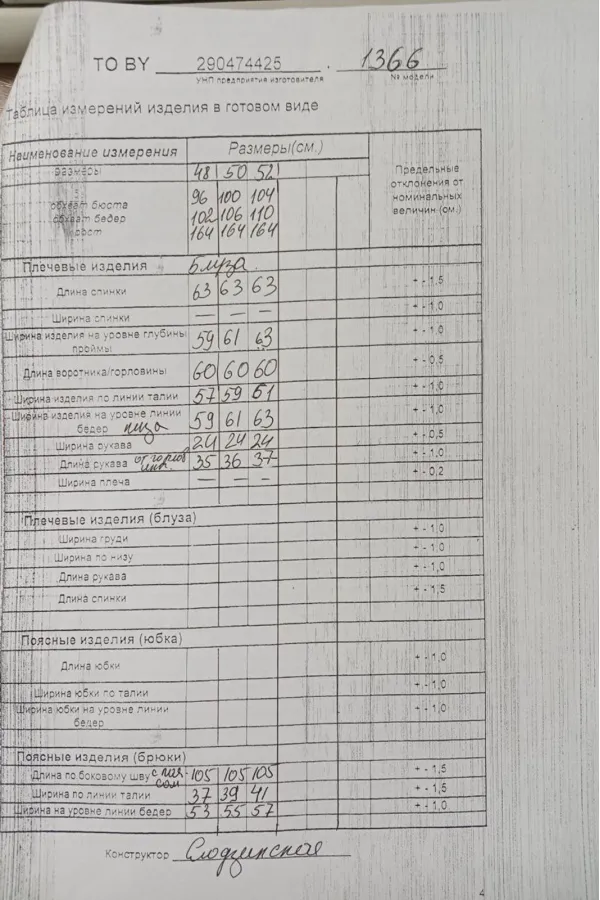 ТО BY 290474425 . 1366
УНП предприятия изготовителя № модели
Таблица измерений изделия в готовом виде
Наименование измерения Размеры(см.) Предельные отклонения от номинальных величин (см.)
размеры 48 50 52
обхват бюста 96 100 104
обхват бедер 102 106 110
рост 164 164 164
Плечевые изделия Блуза
Длина спинки 63 63 63 + - 1,5
Ширина спинки — — — + - 1,0
Ширина изделия на уровне глубины проймы 59 61 63 + - 1,0
Длина воротника/горловины 60 60 60 + - 0,5
Ширина изделия по линии талии 57 59 61 + - 1,0
Ширина изделия на уровне линии бедер низа 59 61 63 + - 1,0
Ширина рукава 24 24 24 + - 0,5
Длина рукава от горлов 35 36 37 + - 1,0
Ширина плеча — — — + - 0,2
Плечевые изделия (блуза)
Ширина груди + - 1,0
Ширина по низу + - 1,0
Длина рукава + - 1,0
Длина спинки + - 1,5
Поясные изделия (юбка)
Длина юбки + - 1,0
Ширина юбки по талии + - 1,0
Ширина юбки на уровне линии бедер + - 1,0
Поясные изделия (брюки)
Длина по боковому шву с поясом 105 105 105 + - 1,5
Ширина по линии талии 37 39 41 + - 1,5
Ширина на уровне линии бедер 53 55 57 + - 1,0
Конструктор
4